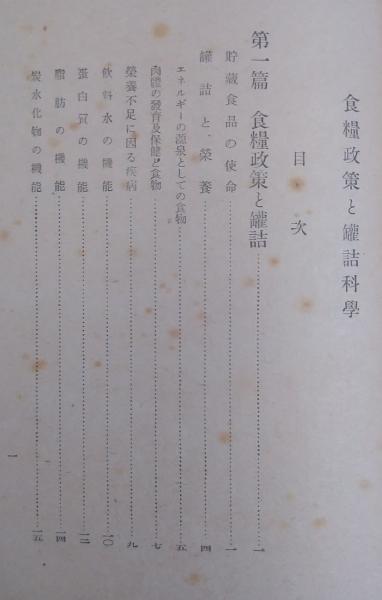 食糧政策と罐詰科學
目次
第一篇 食糧政策と罐詰……一
貯藏食品の使命……一
罐詰と榮養……四
エネルギーの源泉としての食物……五
肉體の發育及保健と食物……七
榮養不足に因る疾病……九
飮料水の機能……一〇
蛋白質の機能……一二
脂肪の機能……一四
炭水化物の機能……一五
一